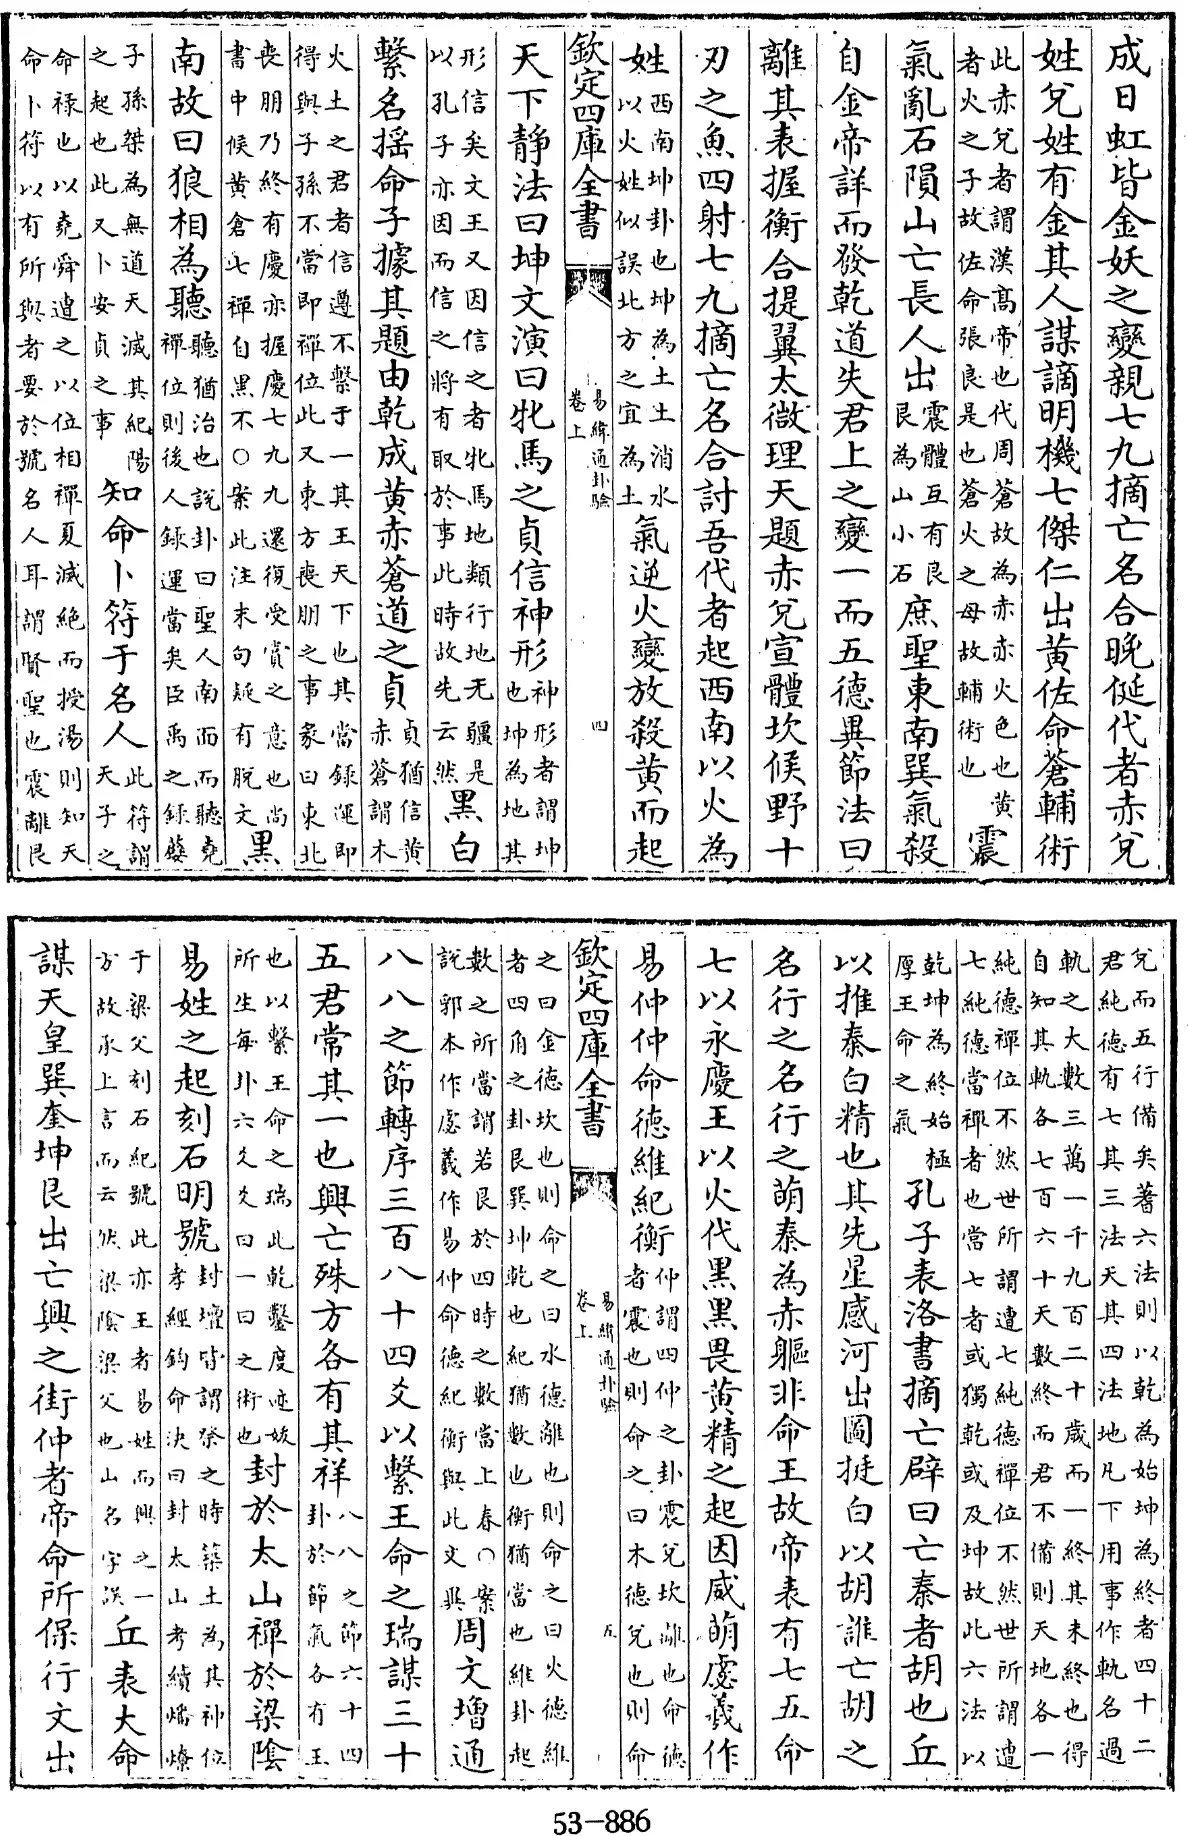 成日虹皆金妖之變親七九摘亡名合晚侹代者赤兌
姓兌姓有金其人謀謫明機七傑仁出黃佐命蒼輔術
此赤兌者謂漢髙帝也代周蒼故為赤赤火色也黃
者火之子故佐命張良是也蒼火之母故輔術也
震
氣亂石隕山亡長人出
震體互有艮
艮為山小石
庶聖東南巽氣殺
自金帝詳而發乾道失君上之變一而五德異節法曰
離其表握衡合提翼太微理天題赤兌宣體坎候野十
刃之魚四射七九摘亡名合討吾代者起西南以火為
姓
西南坤卦也坤為土土消水
以火姓似誤北方之宜為土
氣逆火變放殺黃而起
欽定四庫全書
易緯通卦驗
卷上
四
天下靜法曰坤文演曰牝馬之貞信神形
神形者謂坤
也坤為地其
形信矣文王又因信之者牝馬地類行地无疆是
以孔子亦因而信之將有取於事此時故先云然
黑白
繫名揺命子據其題由乾成黃赤蒼道之貞
貞猶信黃
赤蒼謂木
火土之君者信遵不繫于一其王天下也其當録運即
得與子孫不當即禪位此又東方喪朋之事彖曰東北
喪朋乃終有慶亦握慶七九九還復受賞之意也尚
書中候黃倉七禪自黑不○案此注末句疑有脫文
黑
南故曰狼相為聽
聽猶治也說卦曰聖人南而而聽堯
禪位則後人録運當矣臣禹之録蘖
子孫桀為無道天滅其紀陽
之起也此又卜安貞之事
知命卜符于名人
此符謂
天子之
命禄也以堯舜遭之以位相禪夏滅絶而授湯則知天
命卜符以有所與者要於號名人耳謂賢聖也震離艮
兌而五行備矣著六法則以乾為始坤為終者四十二
君純德有七其三法天其四法地凡下用事作軌名過
軌之大數三萬一千九百二十歲而一終其未終也得
自知其軌各七百六十天數終而君不備則天地各一
純德禪位不然世所謂遭七純德禪位不然世所謂遭
七純德當禪者也當七者或獨乾或及坤故此六法以
乾坤為終始極
厚王命之氣
孔子表洛書摘亡辟曰亡秦者胡也丘
以推秦白精也其先星感河出圖挺白以胡誰亡胡之
名行之名行之萌秦為赤軀非命王故帝表有七五命
七以永慶王以火代黑黑畏黃精之起因威萌虙羲作
易仲仲命德維紀衡
仲謂四仲之卦震兌坎離也命德
者震也則命之曰木德兌也則命
欽定四庫全書
易緯通卦驗
卷上
五
之曰金德坎也則命之曰水德離也則命之曰火德維
者四角之卦艮巽坤乾也紀猶數也衡猶當也維卦起
數之所當謂若艮於四時之數當上春○案
說郛本作虙羲作易仲命德紀衡與此文異
周文增通
八八之節轉序三百八十四爻以繫王命之瑞謀三十
五君常其一也興亡殊方各有其祥
八八之節六十四
卦於節氣各有王
也以繫王命之瑞此乾鑿度迹妭
所生每卦六爻爻曰一日之術也
封於太山禪於梁陰
易姓之起刻石明號
封壇皆謂祭之時築土為其神位
孝經鉤命決曰封太山考績燔燎
于梁父刻石紀號此亦王者易姓而興之一
方故承上言而云然梁陰梁父也山名字誤
丘表大命
謀天皇巽奎坤艮出亡興之街仲者帝命所保行文出
53-886